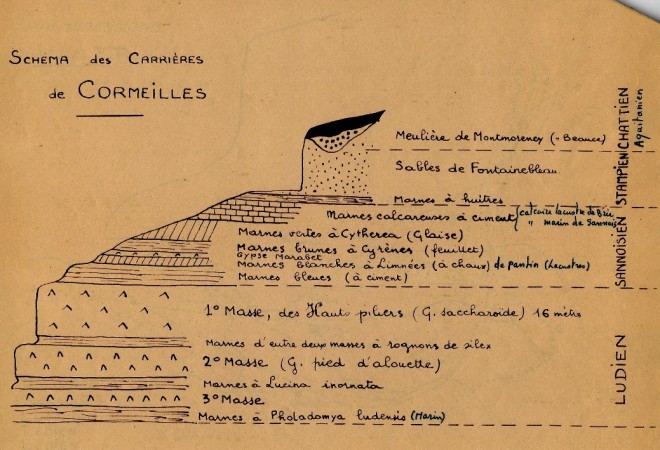 SCHEMA des CARRIÈRES
de CORMEILLES
Meulière de Montmorency (= Beauce)
Sables de Fontainebleau
Marnes à huîtres
Marnes calcareuses à ciment
calcaire lacustre de Brie
" marin de Sannois
Marnes vertes à Cytherea (Glaise)
Marnes brunes à Cyrènes (feuillet)
Gypse Marabet
Marnes blanches à Limnées (à chaux) de Pantin (Lacustres)
Marnes bleues (à ciment)
1º Masse, des Hauts piliers (G. saccharoïde) 16 mètres
Marnes d'entre deux masses à rognons de silex
2º Masse (G. pied d'alouette)
Marnes à Lucina inornata
3º Masse
Marnes à Pholadomya ludensis (Marin)
CHATTIEN
Aquitanien
STAMPIEN
SANNOISIEN
LUDIEN